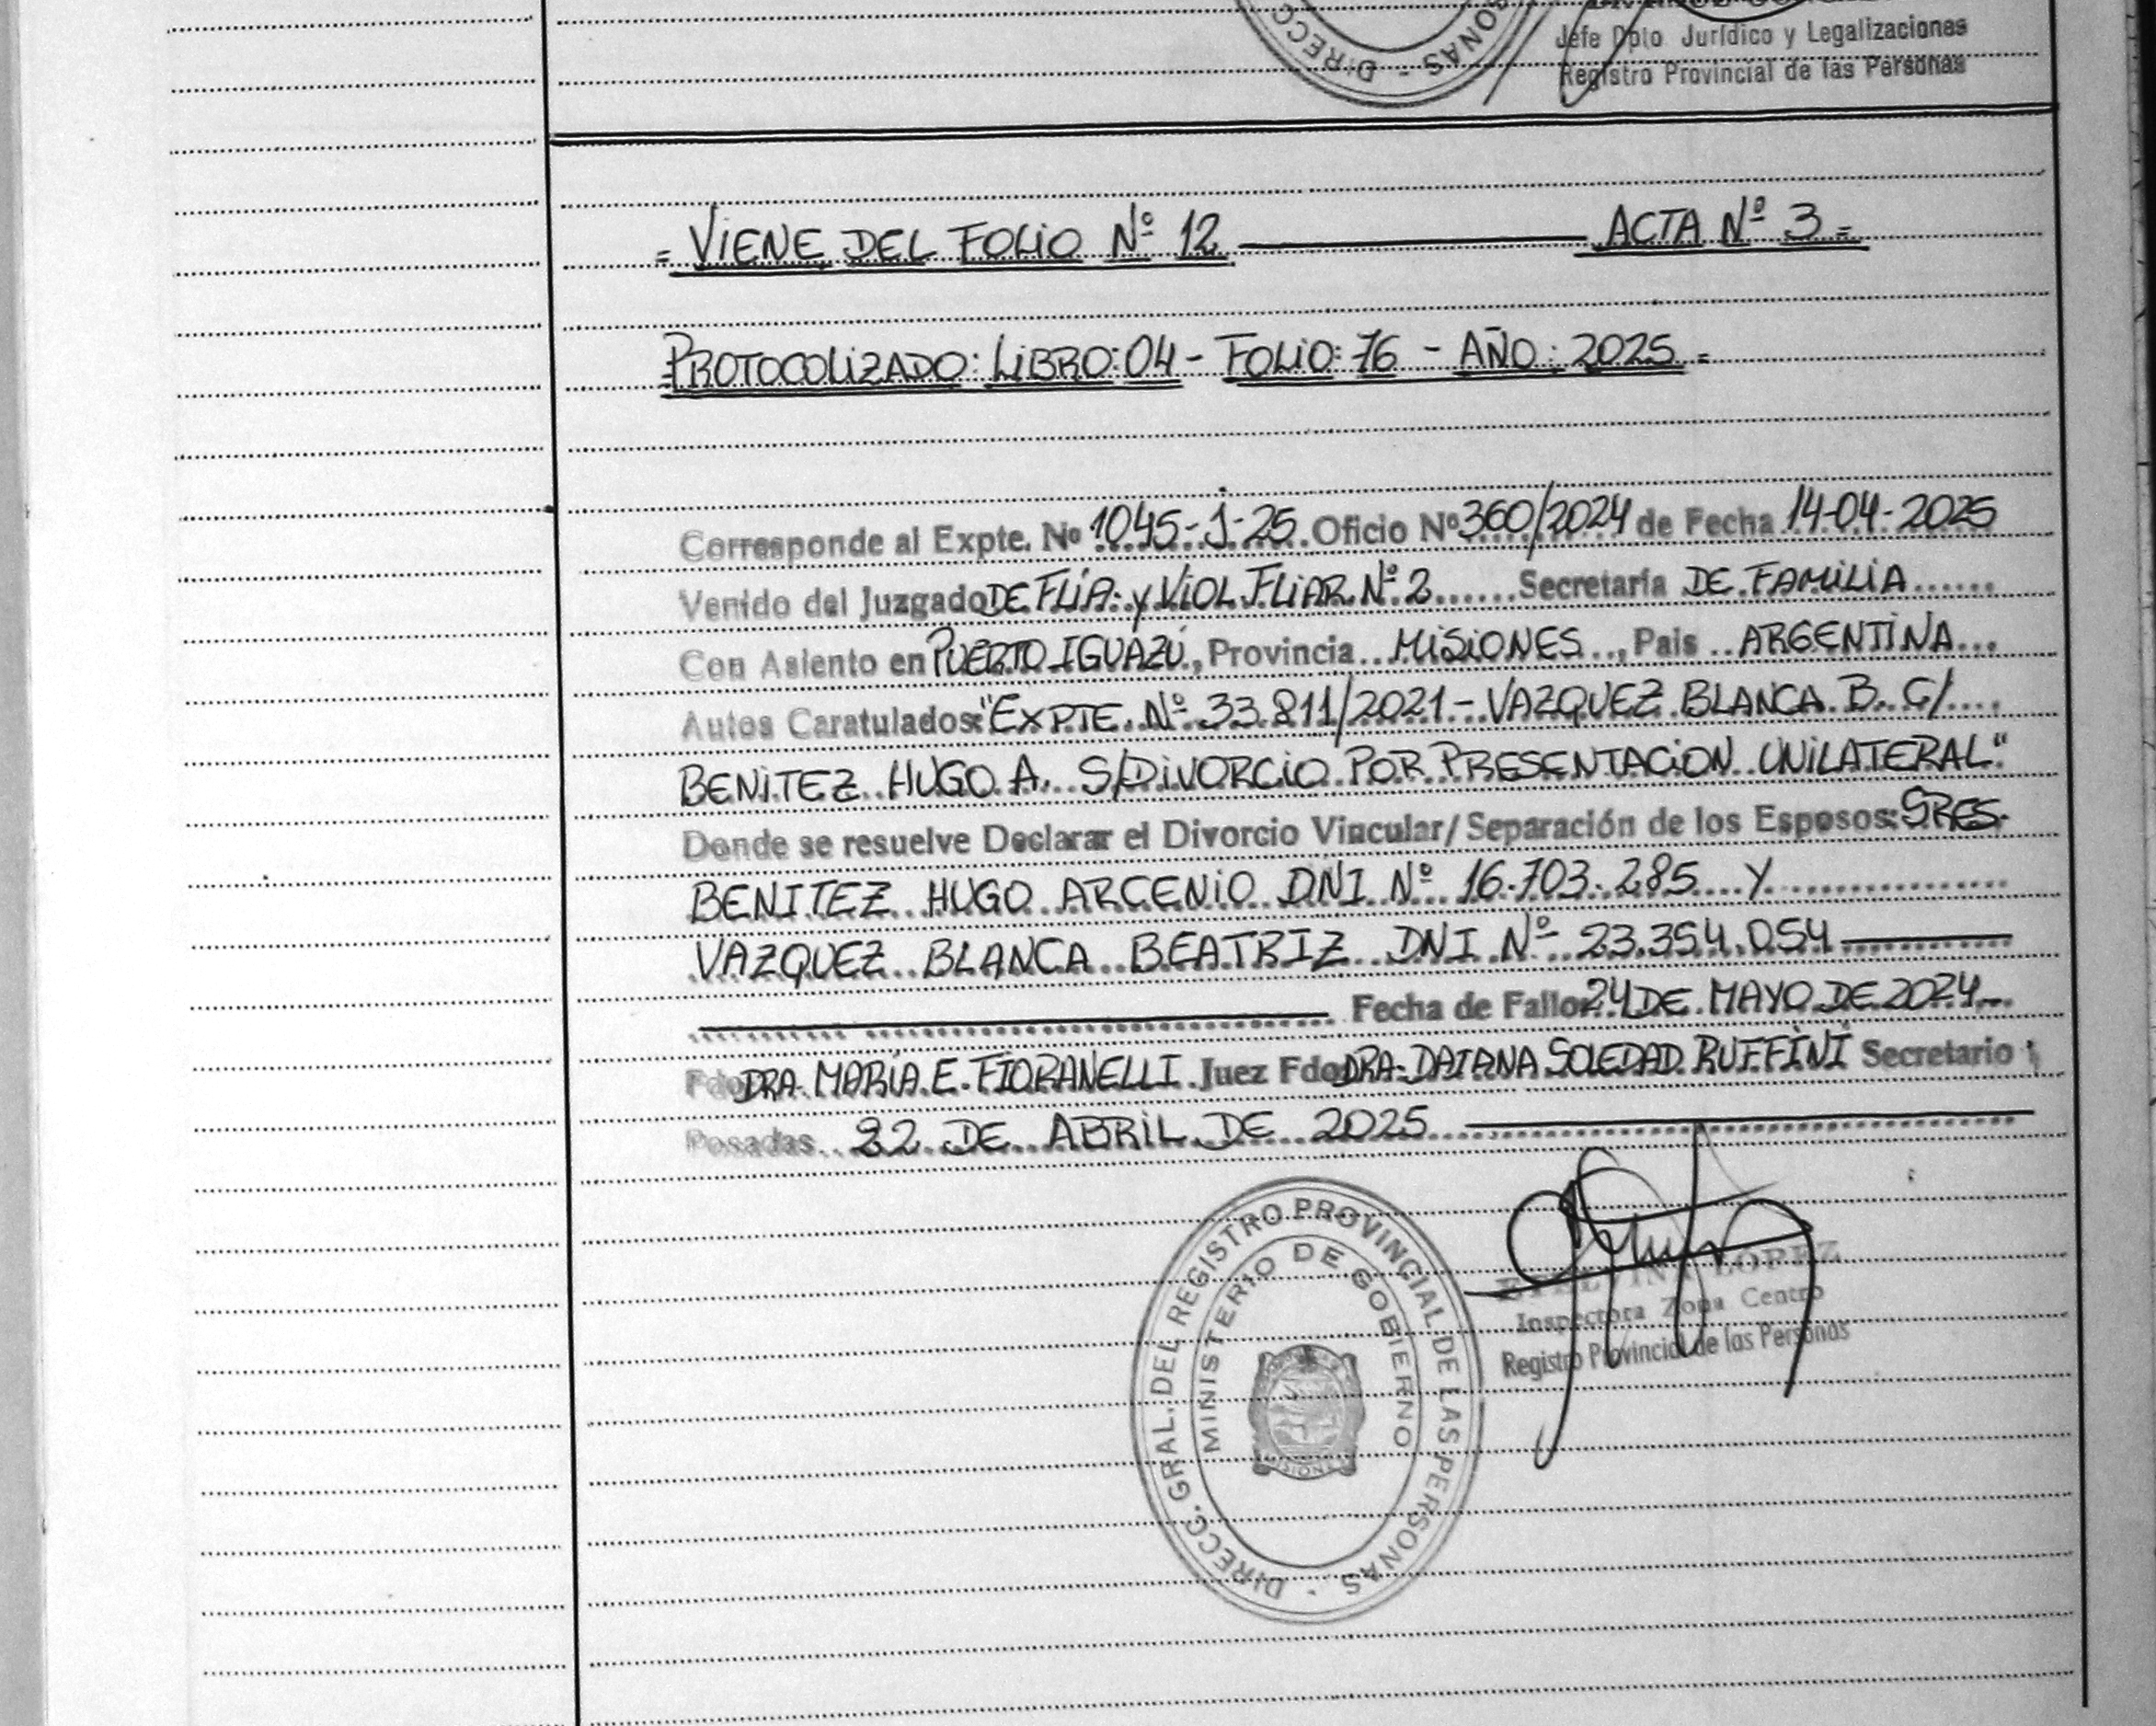 Jefe Dpto Jurídico y Legalizaciones
Registro Provincial de las Personas
= VIENE DEL FOLIO Nº 12 ACTA Nº 3 =
= PROTOCOLIZADO: LIBRO: 04 - FOLIO: 76 - AÑO: 2025 =
Corresponde al Expte. Nº 1045-J-25 Oficio Nº 360/2024 de Fecha 14-04-2025
Venido del Juzgado DE FLIA. y VIOL FLIAR Nº 2 Secretaría DE FAMILIA
Con Asiento en PUERTO IGUAZÚ, Provincia MISIONES, Pais ARGENTINA
Autos Caratulados: "EXPTE. Nº 33.811/2021 - VAZQUEZ BLANCA B. C/
BENITEZ HUGO A. S/DIVORCIO POR PRESENTACION UNILATERAL"
Donde se resuelve Declarar el Divorcio Vincular/Separación de los Esposos: SRES.
BENITEZ HUGO ARCENIO DNI Nº 16.703.285 Y
VAZQUEZ BLANCA BEATRIZ DNI Nº 23.354.054
Fecha de Fallo 24 DE MAYO DE 2024
Fdo DRA. MARÍA E. FIORANELLI Juez Fdo DRA. DAIANA SOLEDAD RUFFINI Secretario
Posadas 22 DE ABRIL DE 2025
DIRECC. GRAL. DEL REGISTRO PROVINCIAL DE LAS PERSONAS
MINISTERIO DE GOBIERNO
MISIONES
LOPEZ
Inspectora Zona Centro
Registro Provincial de las Personas